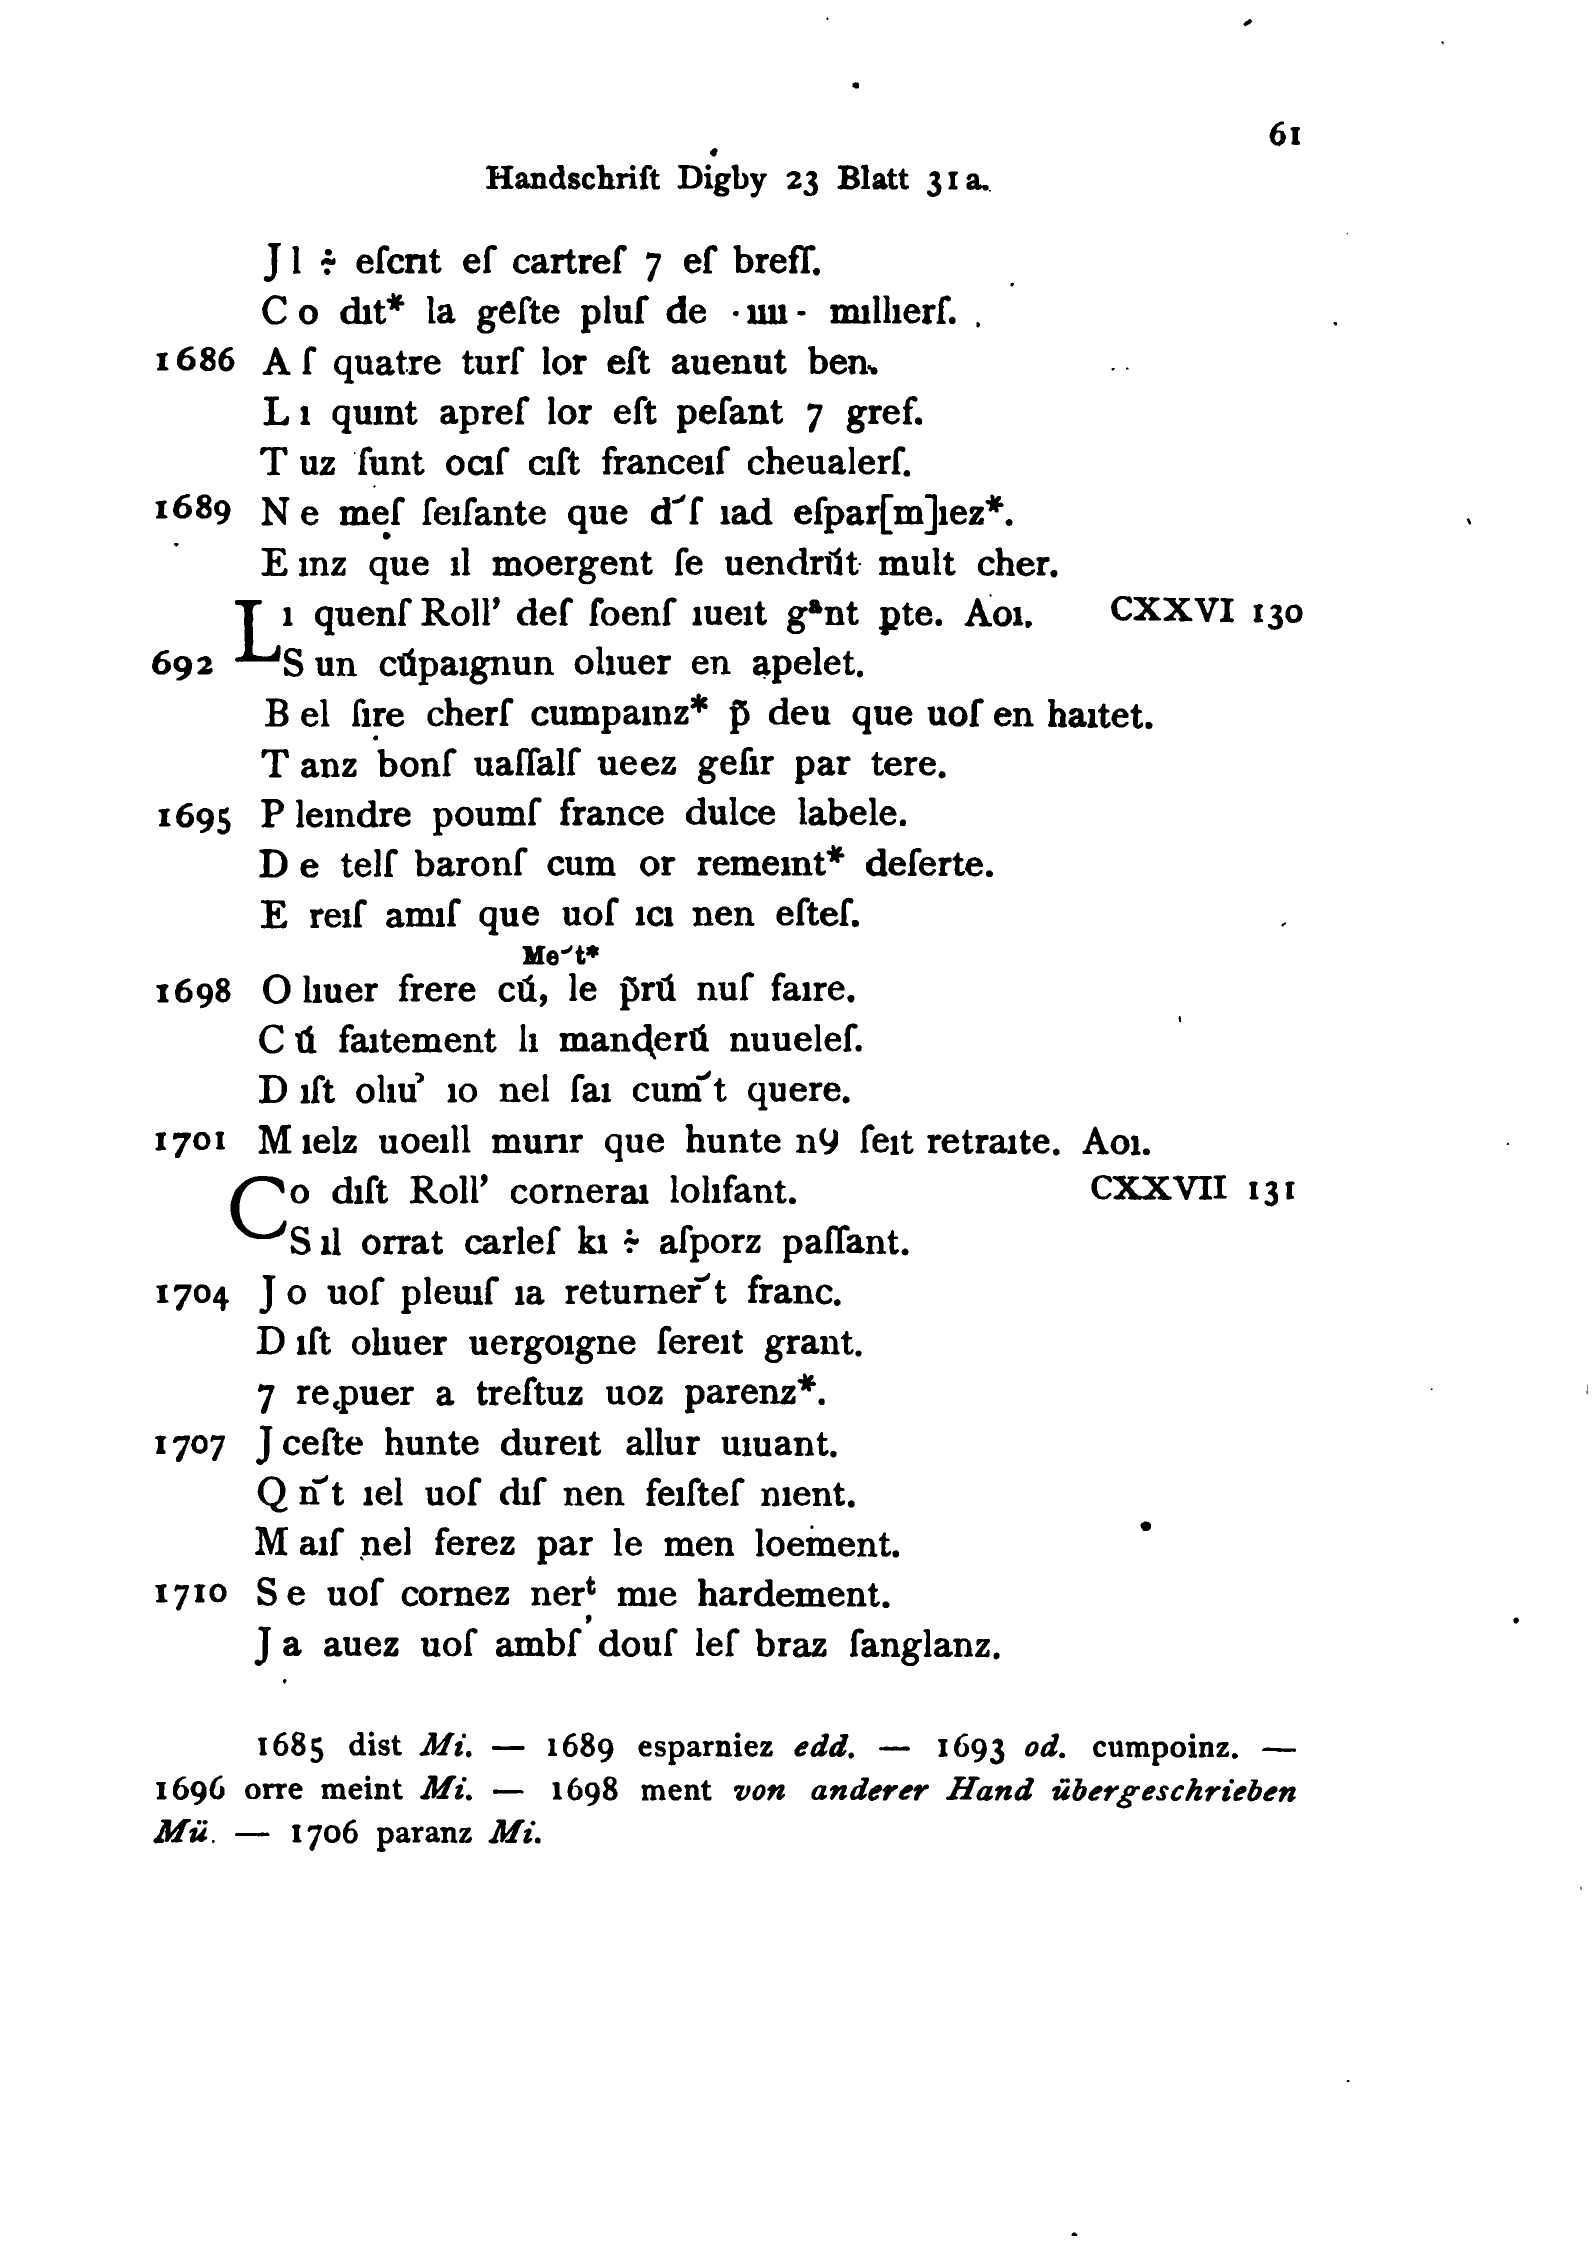 61
Handschrift Digby 23 Blatt 31a.
J l ÷ eſcrıt eſ cartreſ 7 eſ breſſ.
C o dıt* la geſte pluſ de ·ıııı· mıllıerſ.
1686 A ſ quatre turſ lor eſt auenut ben.
L ı quınt apreſ lor eſt peſant 7 gref.
T uz ſunt ocıſ cıſt franceıſ cheualerſ.
1689 N e meſ ſeıſante que d᷃ſ ıad eſpar[m]ıez*.
E ınz que ıl moergent ſe uendrūt mult cher.
L ı quenſ Roll’ deſ ſoenſ ıueıt gᵃnt ꝑte. Aoı. CXXVI 130
692 S un cūpaıgnun olıuer en apelet.
B el ſıre cherſ cumpaınz* p̄ deu que uoſ en haıtet.
T anz bonſ uaſſalſ ueez geſır par tere.
1695 P leındre poumſ france dulce labele.
D e telſ baronſ cum or remeınt* deſerte.
E reıſ amıſ que uoſ ıcı nen eſteſ.
Me᷃t*
1698 O lıuer frere cū, le p̄rū nuſ faıre.
C ū faıtement lı manderū nuueleſ.
D ıſt olıu’ ıo nel ſaı cum᷃t quere.
1701 M ıelz uoeıll murır que hunte nꝯ ſeıt retraıte. Aoı.
C o dıſt Roll’ corneraı lolıfant. CXXVII 131
S ıl orrat carleſ kı ÷ aſporz paſſant.
1704 J o uoſ pleuıſ ıa returner᷃t franc.
D ıſt olıuer uergoıgne ſereıt grant.
7 reꝓuer a treſtuz uoz parenz*.
1707 J ceſte hunte dureıt allur uıuant.
Q n᷃t ıel uoſ dıſ nen feıſteſ nıent.
M aıſ nel ferez par le men loement.
1710 S e uoſ cornez nerᵗ mıe hardement.
J a auez uoſ ambſ’douſ leſ braz ſanglanz.
1685 dist Mi. — 1689 esparniez edd. — 1693 od. cumpoinz. —
1696 orre meint Mi. — 1698 ment von anderer Hand übergeschrieben
Mü. — 1706 paranz Mi.